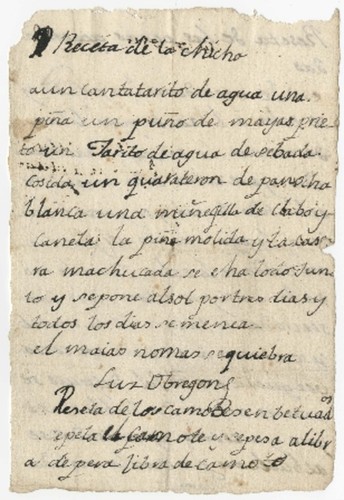 Receta de la chicha
a un cantatarito de agua una
piña un puño de mayas prie
to un Jarito de agua de sebada
cosida un quarateron de panocha
blanca una muñegilla de clabo y
canela la piña molida y la cas
ra machucada se echa todo jun
to y se pone al sol por tres dias y
todos los dias se menea
el maias nomas se quiebra
Luz Obregon
Reseta de los camotes enbetuados
se pela el camote y se pesa a libr
a de pera libra de camote